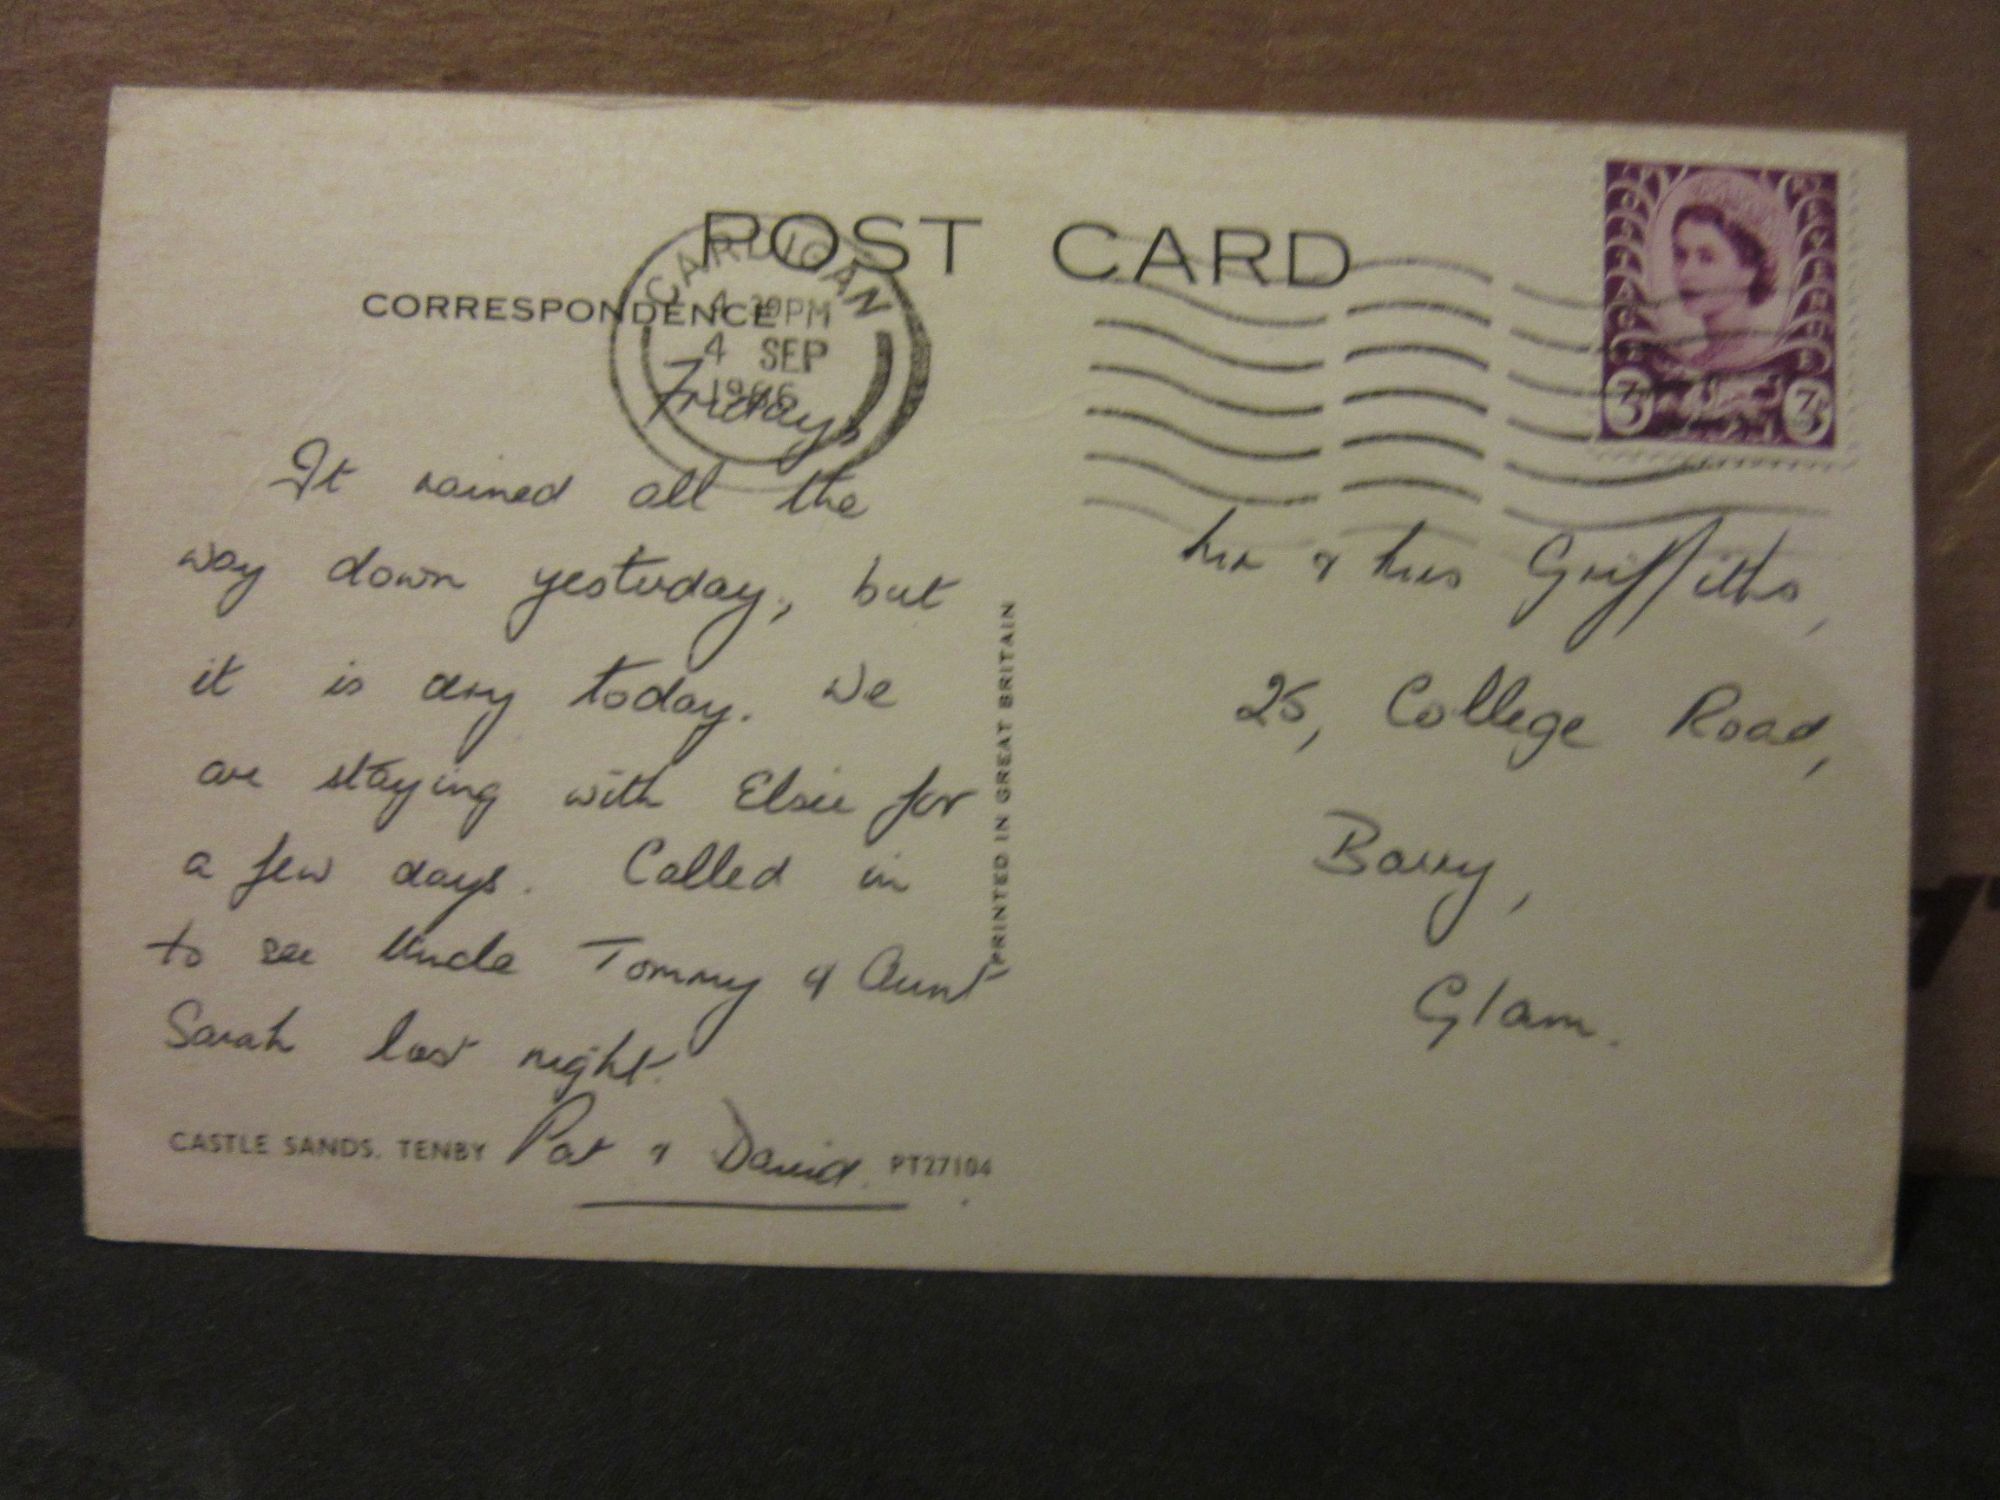 POST CARD
CORRESPONDENCE
CARDIGAN
4 30PM
4 SEP
1966
Friday
It rained all the
way down yesterday, but
it is dry today. We
are staying with Elsie for
a few days. Called in
to see Uncle Tommy & Aunt
Sarah last night.
Pat & David.
CASTLE SANDS, TENBY
PT27104
PRINTED IN GREAT BRITAIN
POSTAGE
REVENUE
3D
3D
Mr & Mrs Griffiths,
25, College Road,
Barry,
Glam.